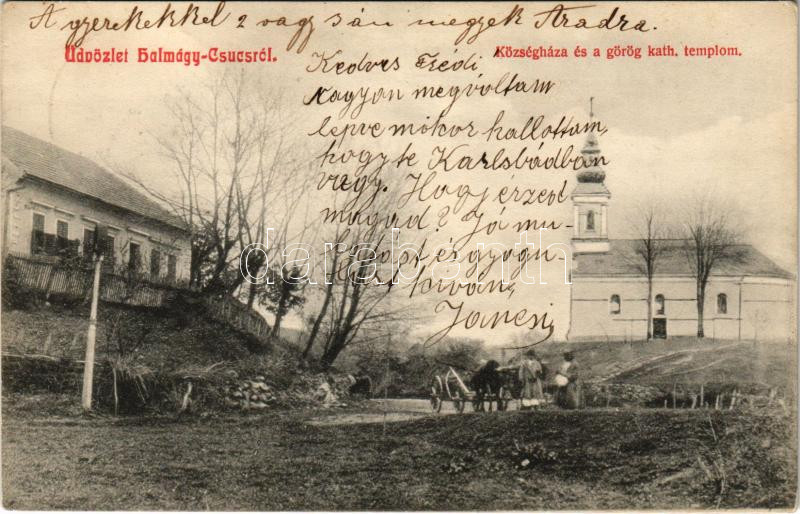 A gyerekekkel 2 vagy sán megyek Aradra.
Üdvözlet Halmágy-Csucsról.
Községháza és a görög kath. templom.
Kedves Frédi
Nagyon meg voltam
lepve mikor hallottam,
hogy te Karlsbádban
vagy. Hogy érzed
magad? Jó mu-
latságot és gyógyu-
lást kiván,
Jancsi
darabanth